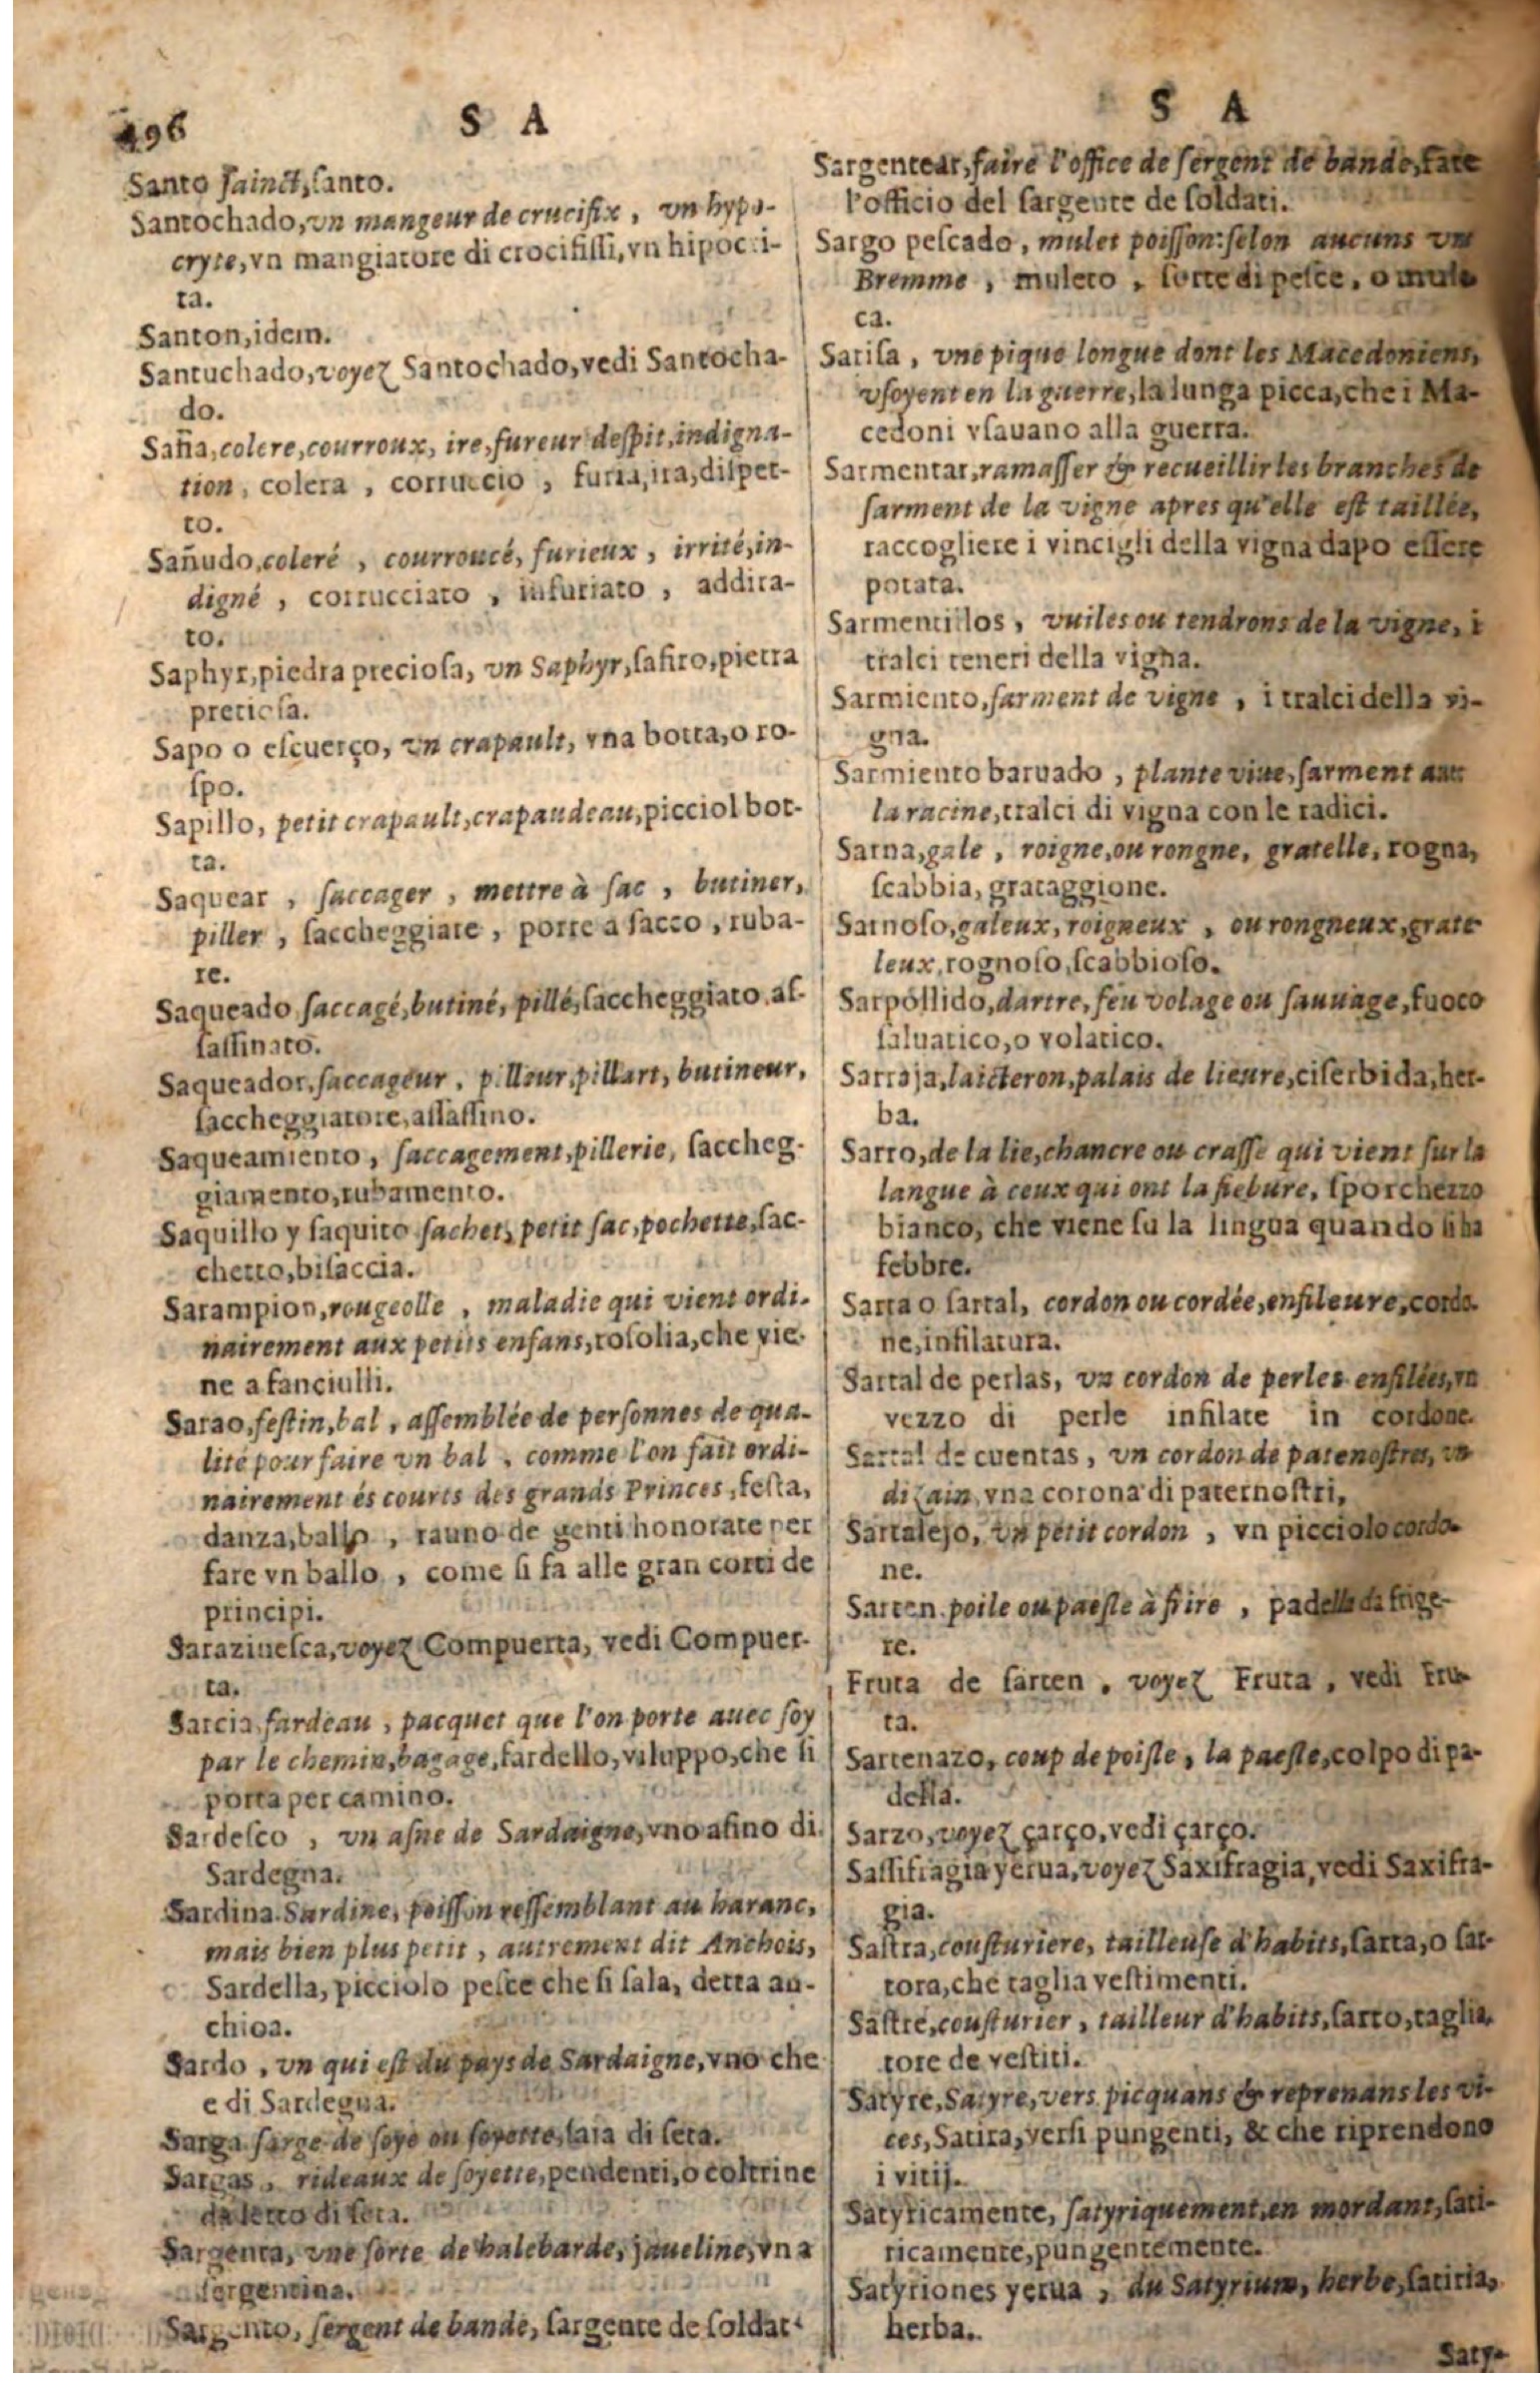 496
S A
Santo sainct, santo.
Santochado, vn mangeur de crucifix, vn hypo-
cryte, vn mangiatore di crocifissi, vn hipocri-
ta.
Santon, idem.
Santuchado, voyez Santochado, vedi Santocha-
do.
Saña, colere, courroux, ire, fureur despit, indigna-
tion, colera, corruccio, furia, ira, dispet-
to.
Sañudo, coleré, courroucé, furieux, irrité, in-
digné, corrucciato, infuriato, addira-
to.
Saphyr, piedra preciosa, vn Saphyr, safiro, pietra
pretiosa.
Sapo o escuerço, vn crapault, vna botta, o ro-
spo.
Sapillo, petit crapault, crapaudeau, picciol bot-
ta.
Saquear, saccager, mettre à sac, butiner,
piller, saccheggiare, porre a sacco, ruba-
re.
Saqueado saccagé, butiné, pillé, saccheggiato, as-
sassinato.
Saqueador, saccageur, pilleur, pillart, butineur,
saccheggiatore, assassino.
Saqueamiento, saccagement, pillerie, saccheg-
giamento, rubamento.
Saquillo y saquito sachet, petit sac, pochette, sac-
chetto, bisaccia.
Sarampion, rougeolle, maladie qui vient ordi-
nairement aux petits enfans, rosolia, che vie-
ne a fanciulli.
Sarao, festin, bal, assemblée de personnes de qua-
lité pour faire vn bal, comme l'on fait ordi-
nairement és courts des grands Princes, festa,
danza, ballo, rauno de genti honorate per
fare vn ballo, come si fa alle gran corti de
principi.
Sarazinesca, voyez Compuerta, vedi Compuer-
ta.
Sarcia, fardeau, pacquet que l'on porte auec soy
par le chemin, bagage, fardello, viluppo, che si
porta per camino.
Sardesco, vn asne de Sardaigne, vno asino di
Sardegna.
Sardina Sardine, poisson ressemblant au haranc,
mais bien plus petit, autrement dit Anchois,
Sardella, picciolo pesce che si sala, detta an-
chioa.
Sardo, vn qui est du pays de Sardaigne, vno che
e di Sardegna.
Sarga sarge de soye ou soyette, saia di seta.
Sargas, rideaux de soyette, pendenti, o coltrine
da letto di seta.
Sargenta, vne sorte de halebarde, jaueline, vna
sergentina.
Sargento, sergent de bande, sargente de soldati
S A
Sargentear, faire l'office de sergent de bande, fare
l'officio del sargente de soldati.
Sargo pescado, mulet poisson: selon aucuns vne
Bremme, muleto, sorte di pesce, o mule
ca.
Sarisa, vne pique longue dont les Macedoniens,
vsoyent en la guerre, la lunga picca, che i Ma-
cedoni vsauano alla guerra.
Sarmentar, ramasser & recueillir les branches de
sarment de la vigne apres qu'elle est taillée,
raccogliere i vincigli della vigna dapo essere
potata.
Sarmentillos, vuiles ou tendrons de la vigne, i
tralci teneri della vigna.
Sarmiento, sarment de vigne, i tralci della vi-
gna.
Sarmiento baruado, plante viue, sarment auec
la racine, tralci di vigna con le radici.
Sarna, gale, roigne, ou rongne, gratelle, rogna,
scabbia, grataggione.
Sarnoso, galeux, roigneux, ou rongneux, grate
leux, rognoso, scabbioso.
Sarpollido, dartre, feu volage ou sauuage, fuoco
saluatico, o volatico.
Sarraja, laicteron, palais de lieure, ciserbida, her-
ba.
Sarro, de la lie, chancre ou crasse qui vient sur la
langue à ceux qui ont la fiebure, sporchezzo
bianco, che viene su la lingua quando si ha
febbre.
Sarta o sartal, cordon ou cordée, enfileure, cordo-
ne, infilatura.
Sartal de perlas, vn cordon de perles enfilées, vn
vezzo di perle infilate in cordone.
Sartal de cuentas, vn cordon de patenostres, vn
dizain, vna corona di paternostri,
Sartalejo, vn petit cordon, vn picciolo cordo-
ne.
Sarten poile ou paesle à frire, padella da frige-
re.
Fruta de sarten, voyez Fruta, vedi Fru-
ta.
Sartenazo, coup de poisle, la paesle, colpo di pa-
della.
Sarzo, voyez çarço, vedi çarço.
Sassifragia yerua, voyez Saxifragia, vedi Saxifra-
gia.
Sastra, cousturiere, tailleuse d'habits, sarta, o sar-
tora, che taglia vestimenti.
Sastre, cousturier, tailleur d'habits, sarto, taglia-
tore de vestiti.
Satyre, Satyre, vers picquans & reprenans les vi-
ces, Satira, versi pungenti, & che riprendono
i vitij.
Satyricamente, satyriquement, en mordant, sati-
ricamente, pungentemente.
Satyriones yerua, du Satyrium, herbe, satiria,
herba.
Saty-